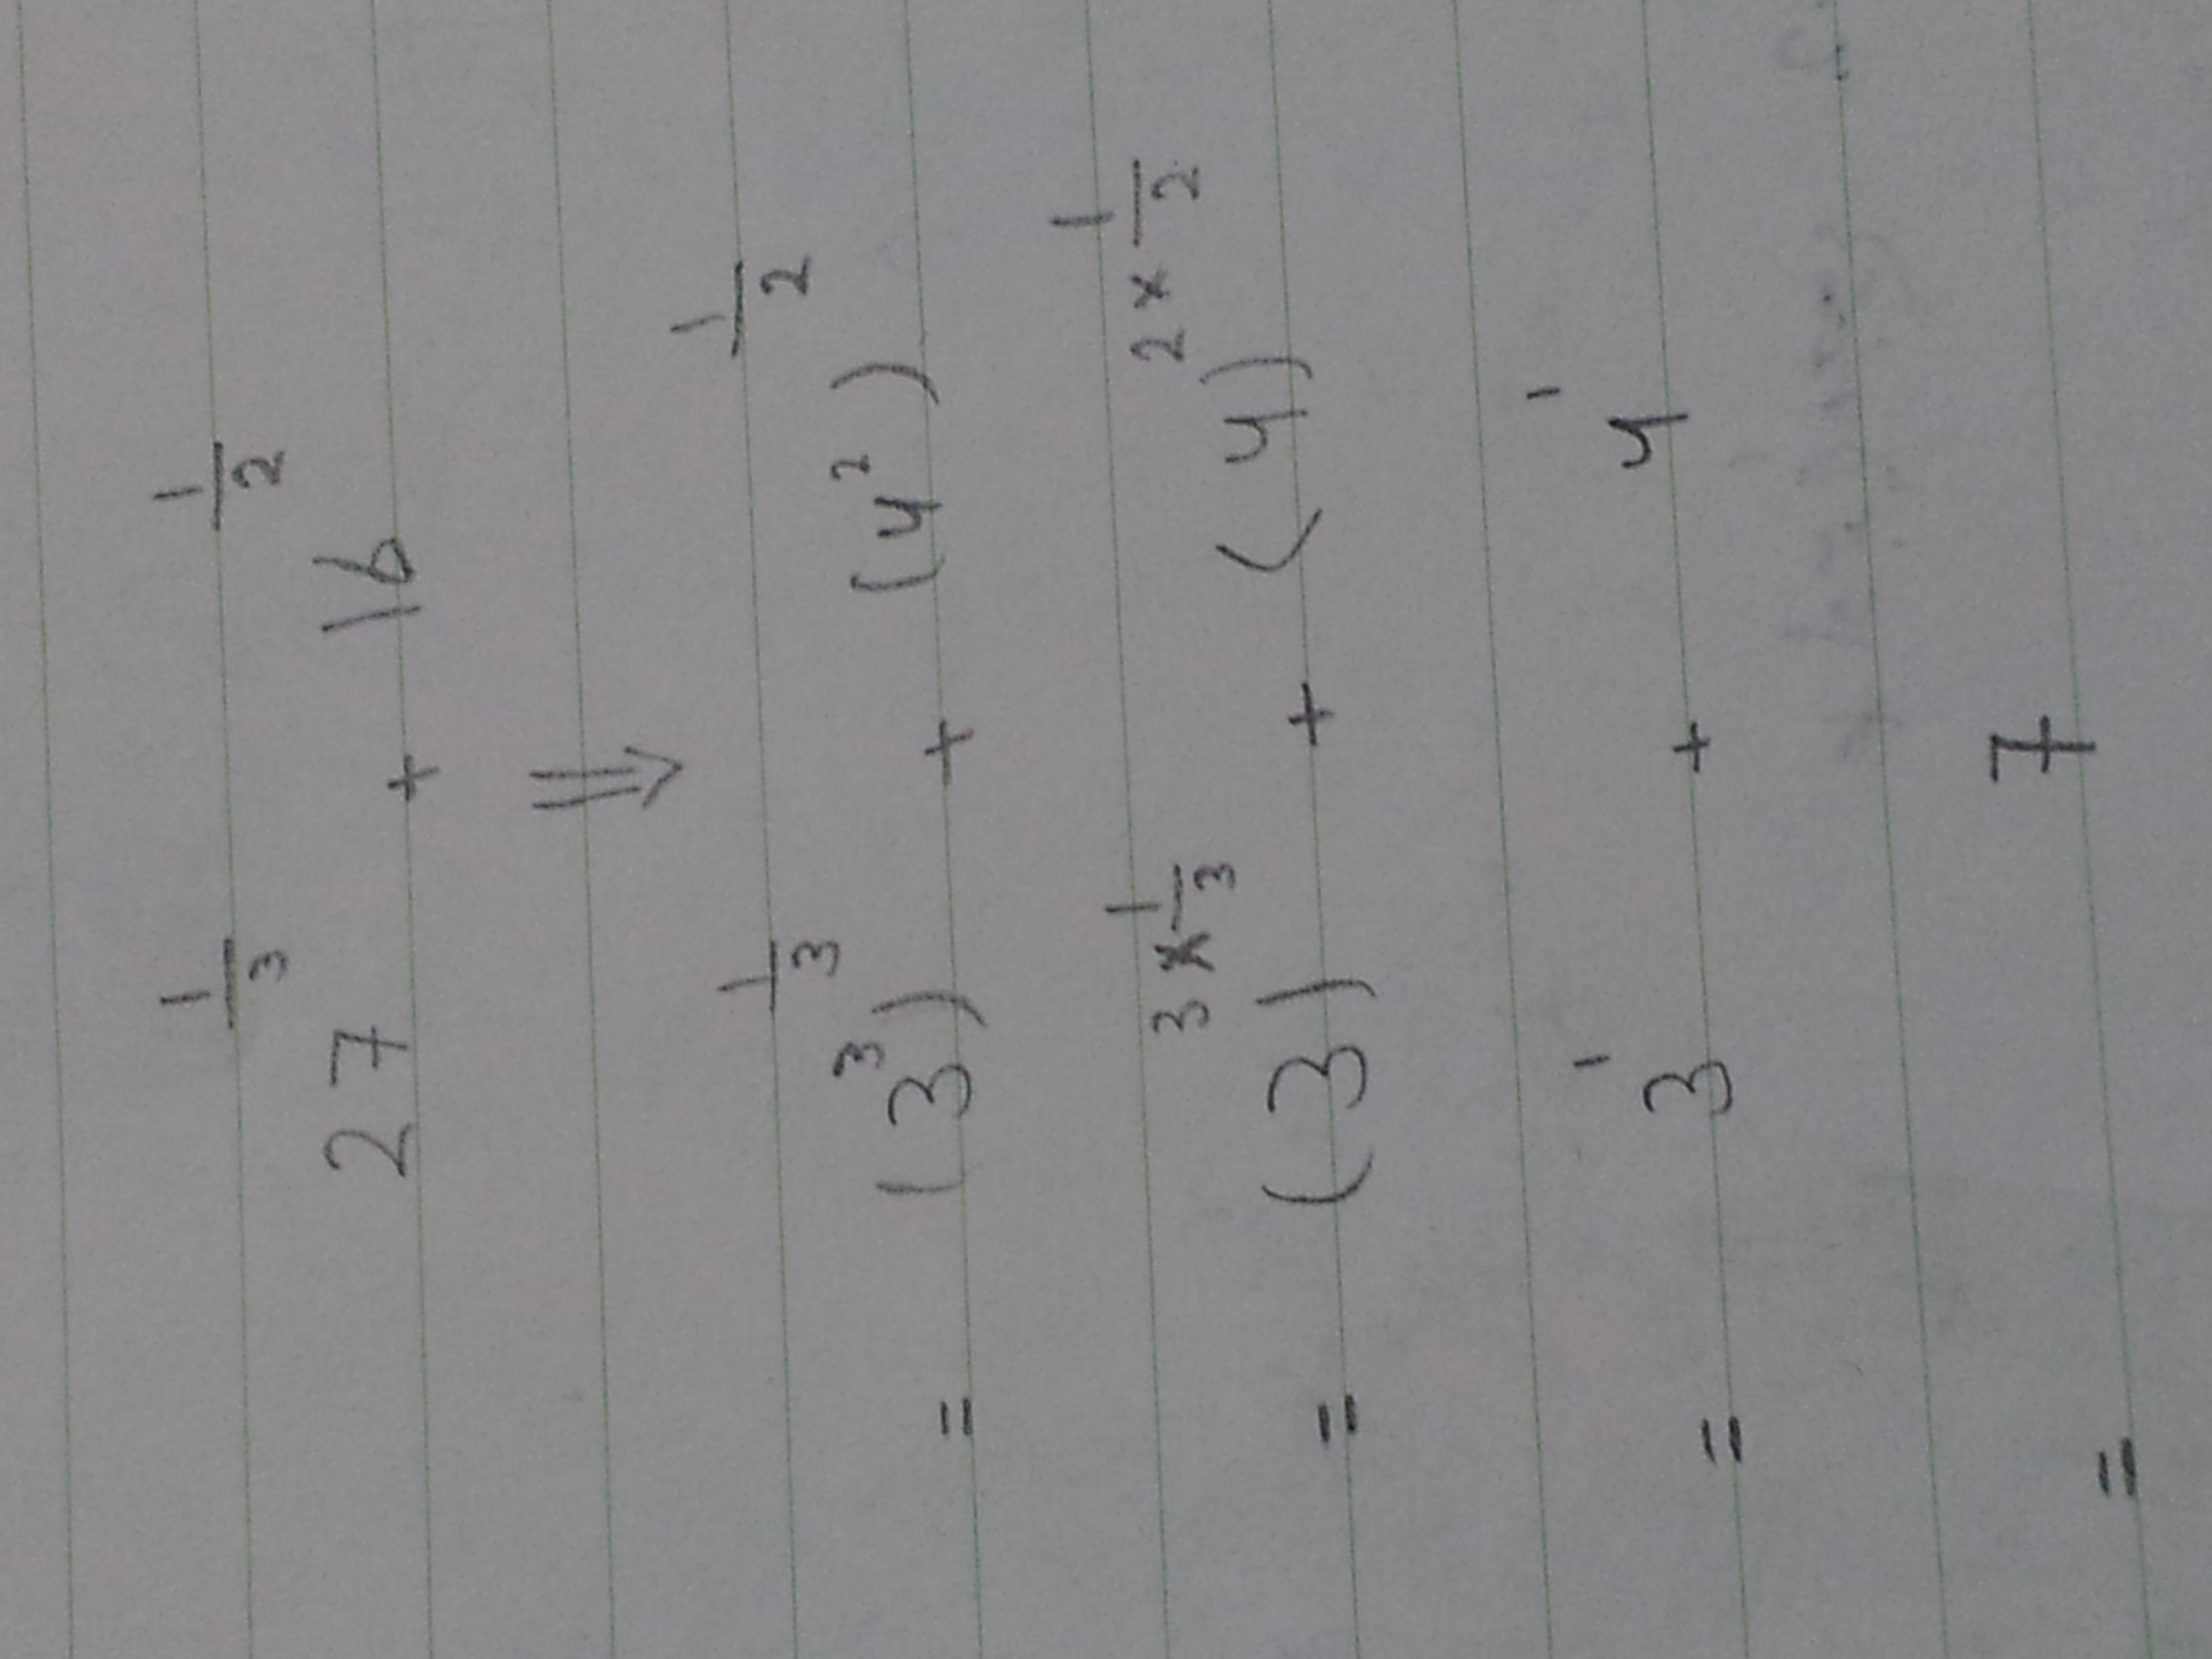 27^(1/3) + 16^(1/2)
⇓
= (3^3)^(1/3) + (4^2)^(1/2)
= (3)^(3×1/3) + (4)^(2×1/2)
= 3^1 + 4^1
= 7